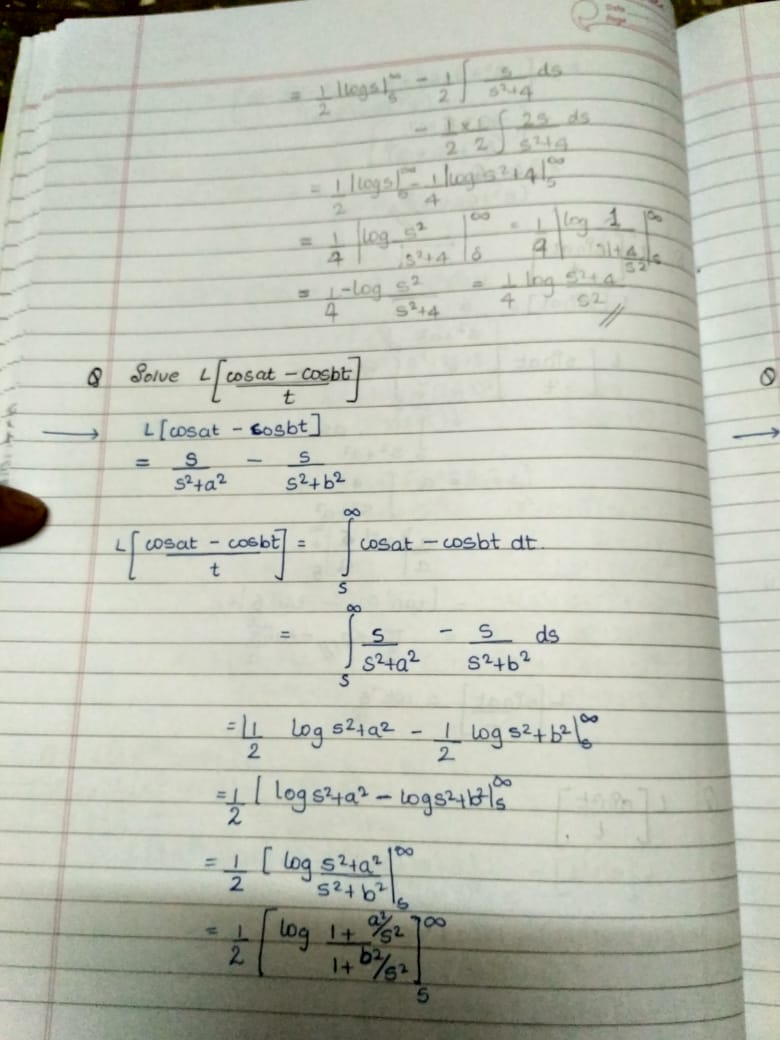 Date
Page
= 1/2 |log s|_s^∞ - 1/2 ∫ s/(s²+4) ds
- 1/2 × 1/2 ∫ 2s/(s²+4) ds
= 1/2 |log s|_s^∞ - 1/4 |log s²+4|_s^∞
= 1/4 |log s²/(s²+4)|_s^∞ = 1/4 |log 1/(1+4/s²)|_s^∞
= 1/4 -log s²/(s²+4) = 1/4 log (s²+4)/s² //
Q Solve L[(cosat - cosbt)/t]
Q
→ L[cosat - cosbt]
→
= s/(s²+a²) - s/(s²+b²)
L[(cosat - cosbt)/t] = ∫_s^∞ cosat - cosbt dt.
= ∫_s^∞ s/(s²+a²) - s/(s²+b²) ds
= |1/2 log s²+a² - 1/2 log s²+b²|_s^∞
= 1/2 [log s²+a² - log s²+b²|_s^∞
= 1/2 [log (s²+a²)/(s²+b²)|_s^∞
= 1/2 [log (1+a²/s²)/(1+b²/s²)]_s^∞